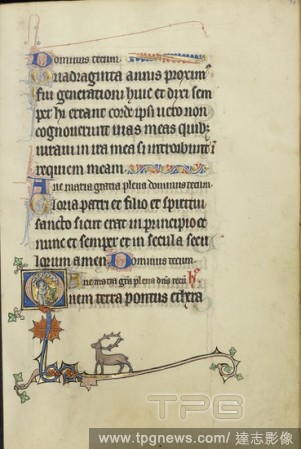 Dominus tecum.
Quadraginta annis proxim
fui generationi huic et dixi sem
per hi errant corde ipsi vero non
cognoverunt vias meas quib
iuravi in ira mea si introibunt i
requiem meam.
Ave maria gratia plena dominus tecum.
Gloria patri et filio et spiritui
sancto sicut erat in principio et
nunc et semper et in secula secu
lorum amen. Dominus tecum.
Ave maria gra plena dns tecu
Quem terra pontus ethera
TPG
www.tpgnews.com/ 達志影像